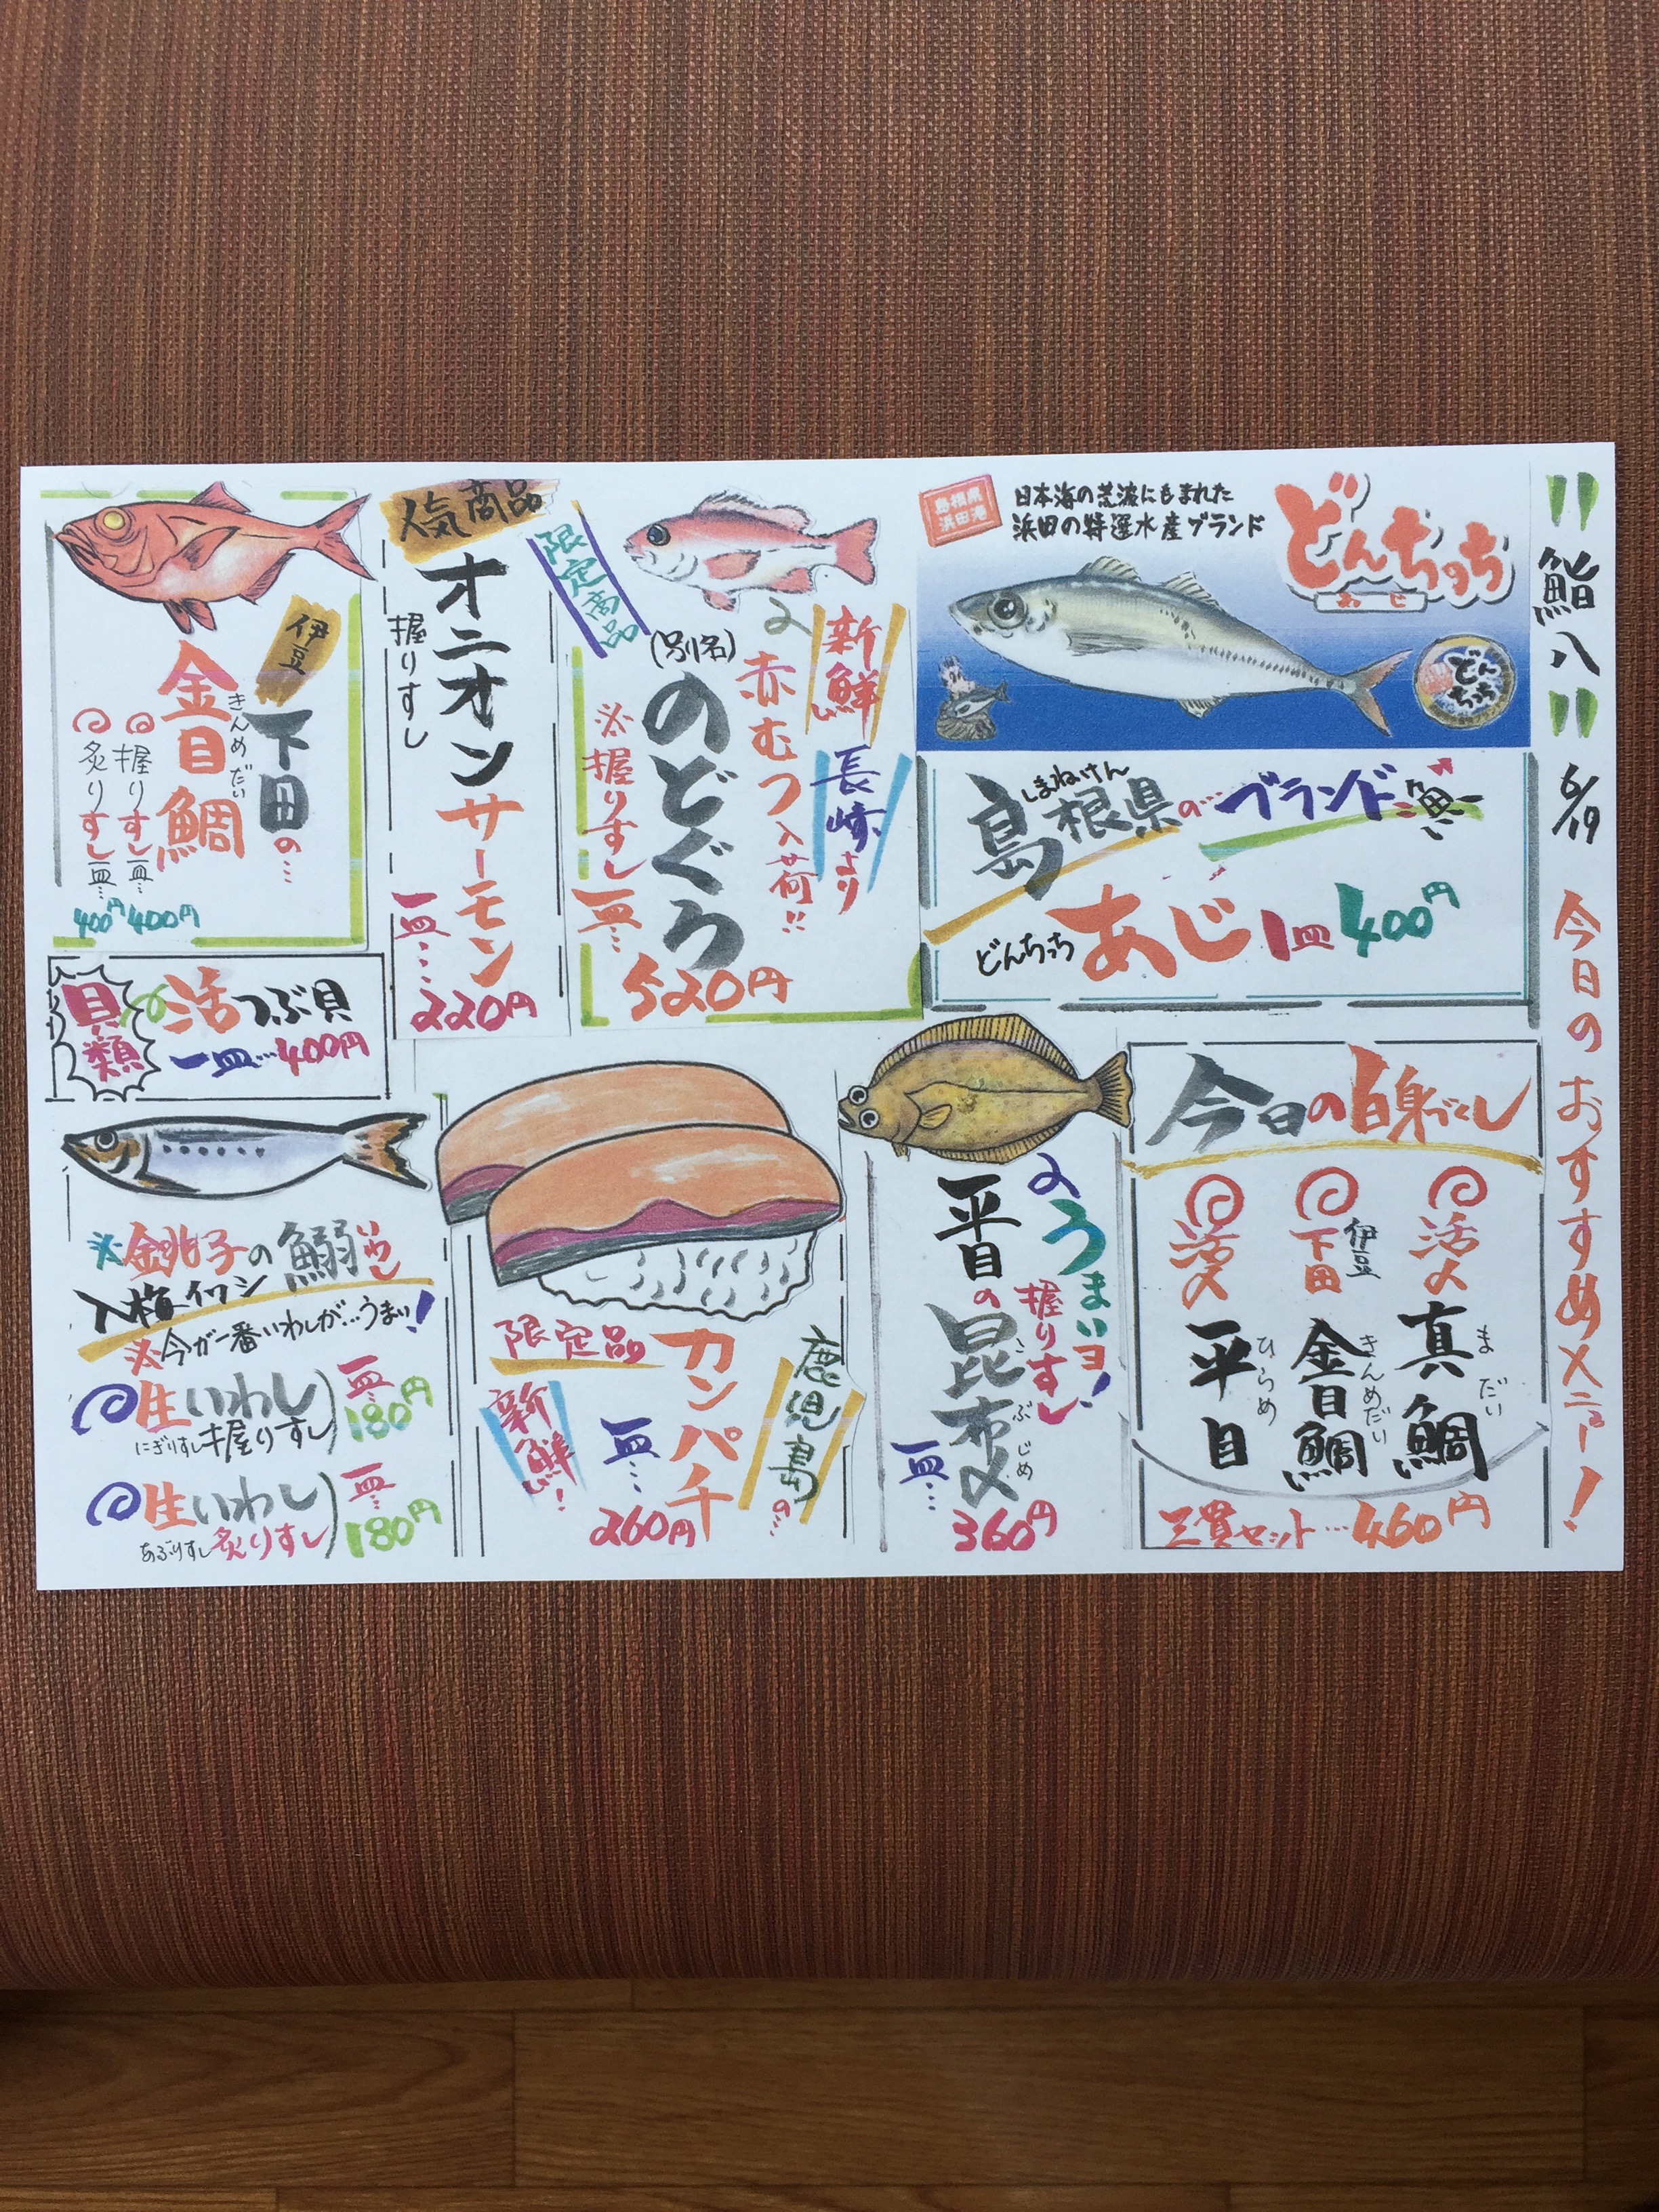 "鮨八" 6/19 今日のおすすめメニュー!
島根県
浜田港
日本海の荒波にもまれた
浜田の特選水産ブランド
どんちっち
あじ
どんちっち
しまねけん
島根県の…ブランド魚
どんちっちあじ1皿400円
限定商品
新鮮 長崎より
赤むつ入荷!!
(別名)
のどぐろ
※握りすし一皿…
520円
人気商品
オニオンサーモン
握りすし
一皿…
220円
伊豆
下田の…
きんめだい
金目鯛
握りすし一皿…400円
炙りすし一皿…400円
貝類
活つぶ貝
一皿…400円
今日の白身づくし
活〆
真鯛
まだい
伊豆
下田
金目鯛
きんめだい
活〆
平目
ひらめ
三貫セット…460円
うまいヨ!
握りすし
平目の昆布〆
こぶじめ
一皿…
360円
鹿児島の…
カンパチ
限定品
新鮮!
一皿…
260円
※銚子の鰯
いわし
入梅イワシ
※今が一番いわしが…うまい!
生いわし
にぎりすし握りすし
一皿…
180円
生いわし
あぶりすし炙りすし
一皿…
180円